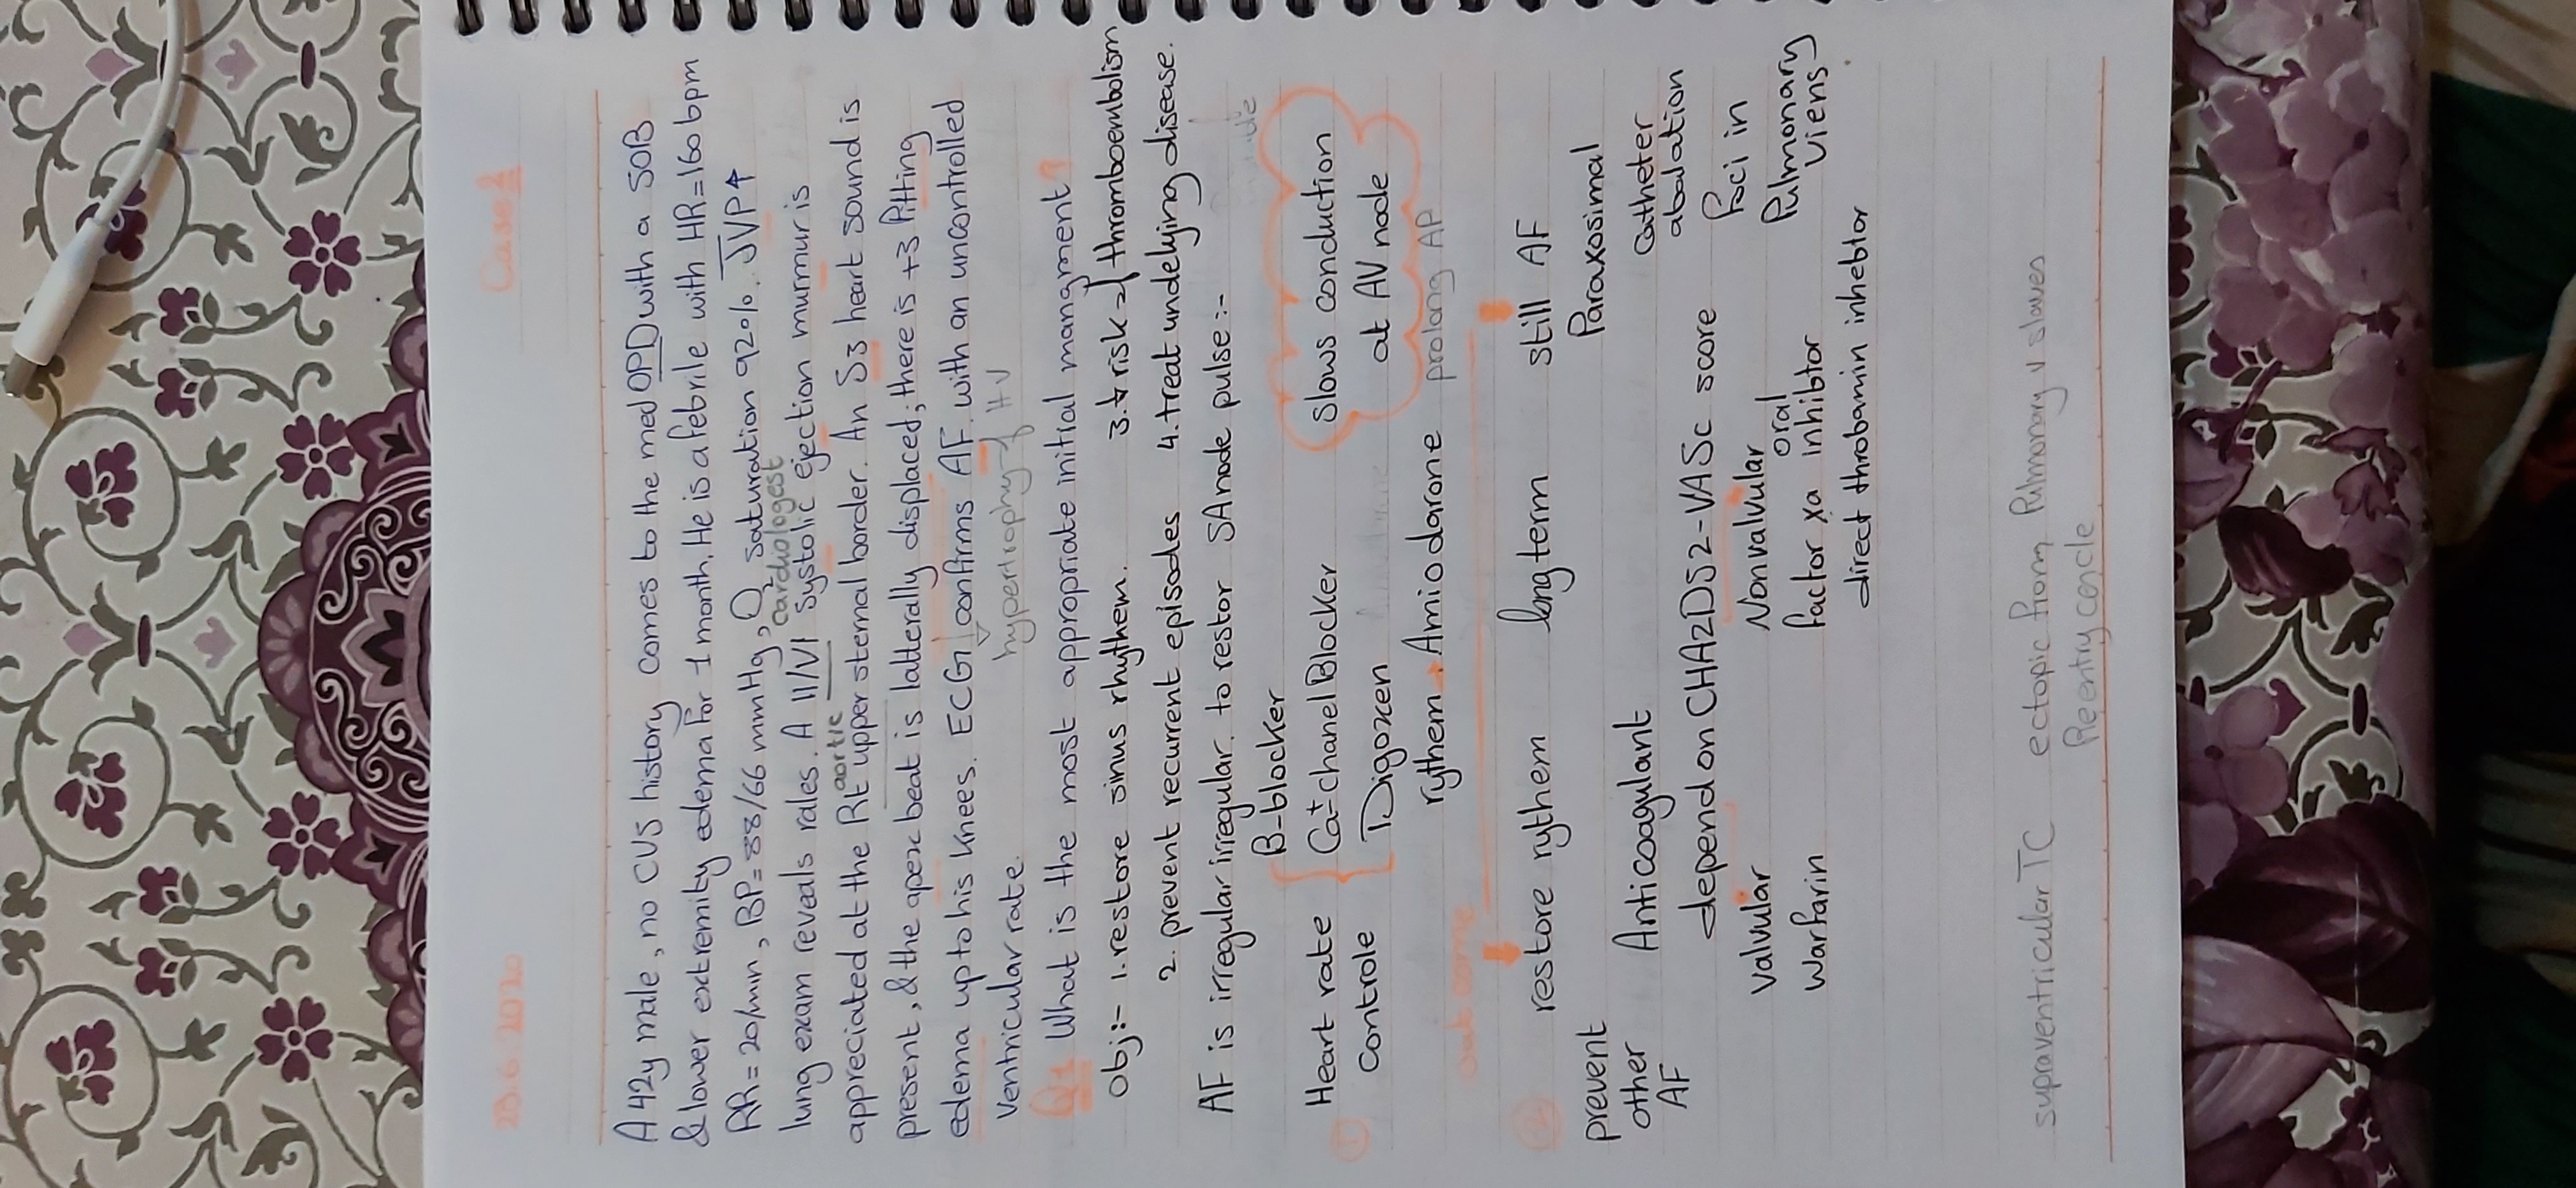 23.6.2020
Case 2
A 42y male, no CVS history comes to the med OPD with a SOB
& lower extremity edema for 1 month. He is a febrile with HR=160bpm
RR=20/min, BP=88/66 mmHg, O2 saturation 92%. JVP↑
cardiologest
lung exam reveals rales. A 11/V1 systolic ejection murmur is
aortic
appreciated at the Rt upper sternal border. An S3 heart sound is
present, & the apex beat is latterally displaced; there is +3 Pitting
edema up to his knees. ECG confirms AF. with an uncontrolled
hypertrophy of HV
ventricular rate.
Q1 What is the most appropriate initial mangment?
Obj:- 1. restore sinus rhythem. 3. ↓ risk = thromboembolism
2. prevent recurrent episodes 4. treat undelying disease.
AF is irregular irregular. to restor SA node pulse:-
B-blocker
Heart rate Ca+ chanel Blocker slows conduction
① controle Digoxen at AV node
rythem → Amiodarone prolong AP
out come
② restore rythem long term still AF
prevent Paraxosimal
other Anticoagulant catheter
AF depend on CHA2DS2-VASc score abalation
valvular Nonvalvular foci in
warfarin oral Pulmonary
factor xa inhibtor viens
direct throbamin inhebtor
supraventricular TC ectopic from Pulmonary v slaves
Reentry cercle